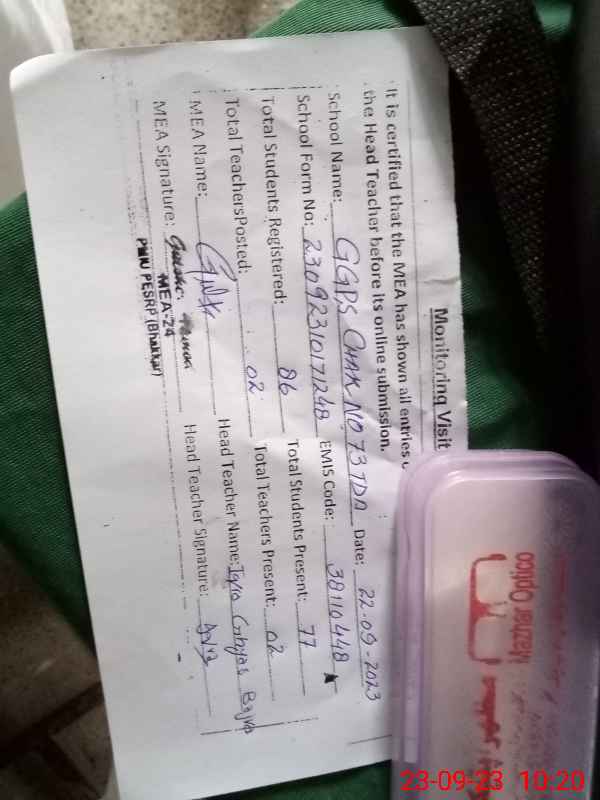 Monitoring Visit
It is certified that the MEA has shown all entries
the Head Teacher before its online submission.
School Name: GGPS CHAK NO 73 TDA Date: 22-09-2023
School Form No: 23092310171248 EMIS Code: 38110448
Total Students Registered: 86 Total Students Present: 77
Total TeachersPosted: 02 Total Teachers Present: 02
MEA Name: Head Teacher Name: Iqra Bajwa
MEA Signature: Head Teacher Signature:
MEA-24
PMIU PESRP (Bhakkar)
Mazhar Optico
23-09-23 10:20